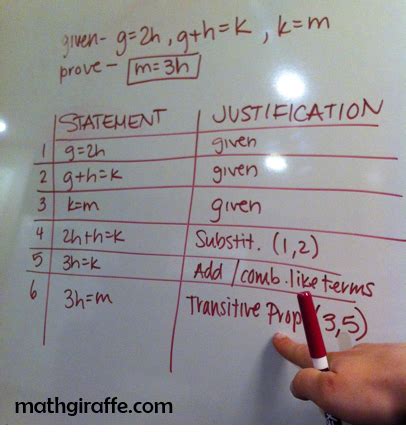 given- g=2h, g+h=k, k=m
prove- m=3h
STATEMENT JUSTIFICATION
1 g=2h given
2 g+h=k given
3 k=m given
4 2h+h=k Substit. (1,2)
5 3h=k Add/comb. like terms
6 3h=m Transitive Prop (3,5)
mathgiraffe.com